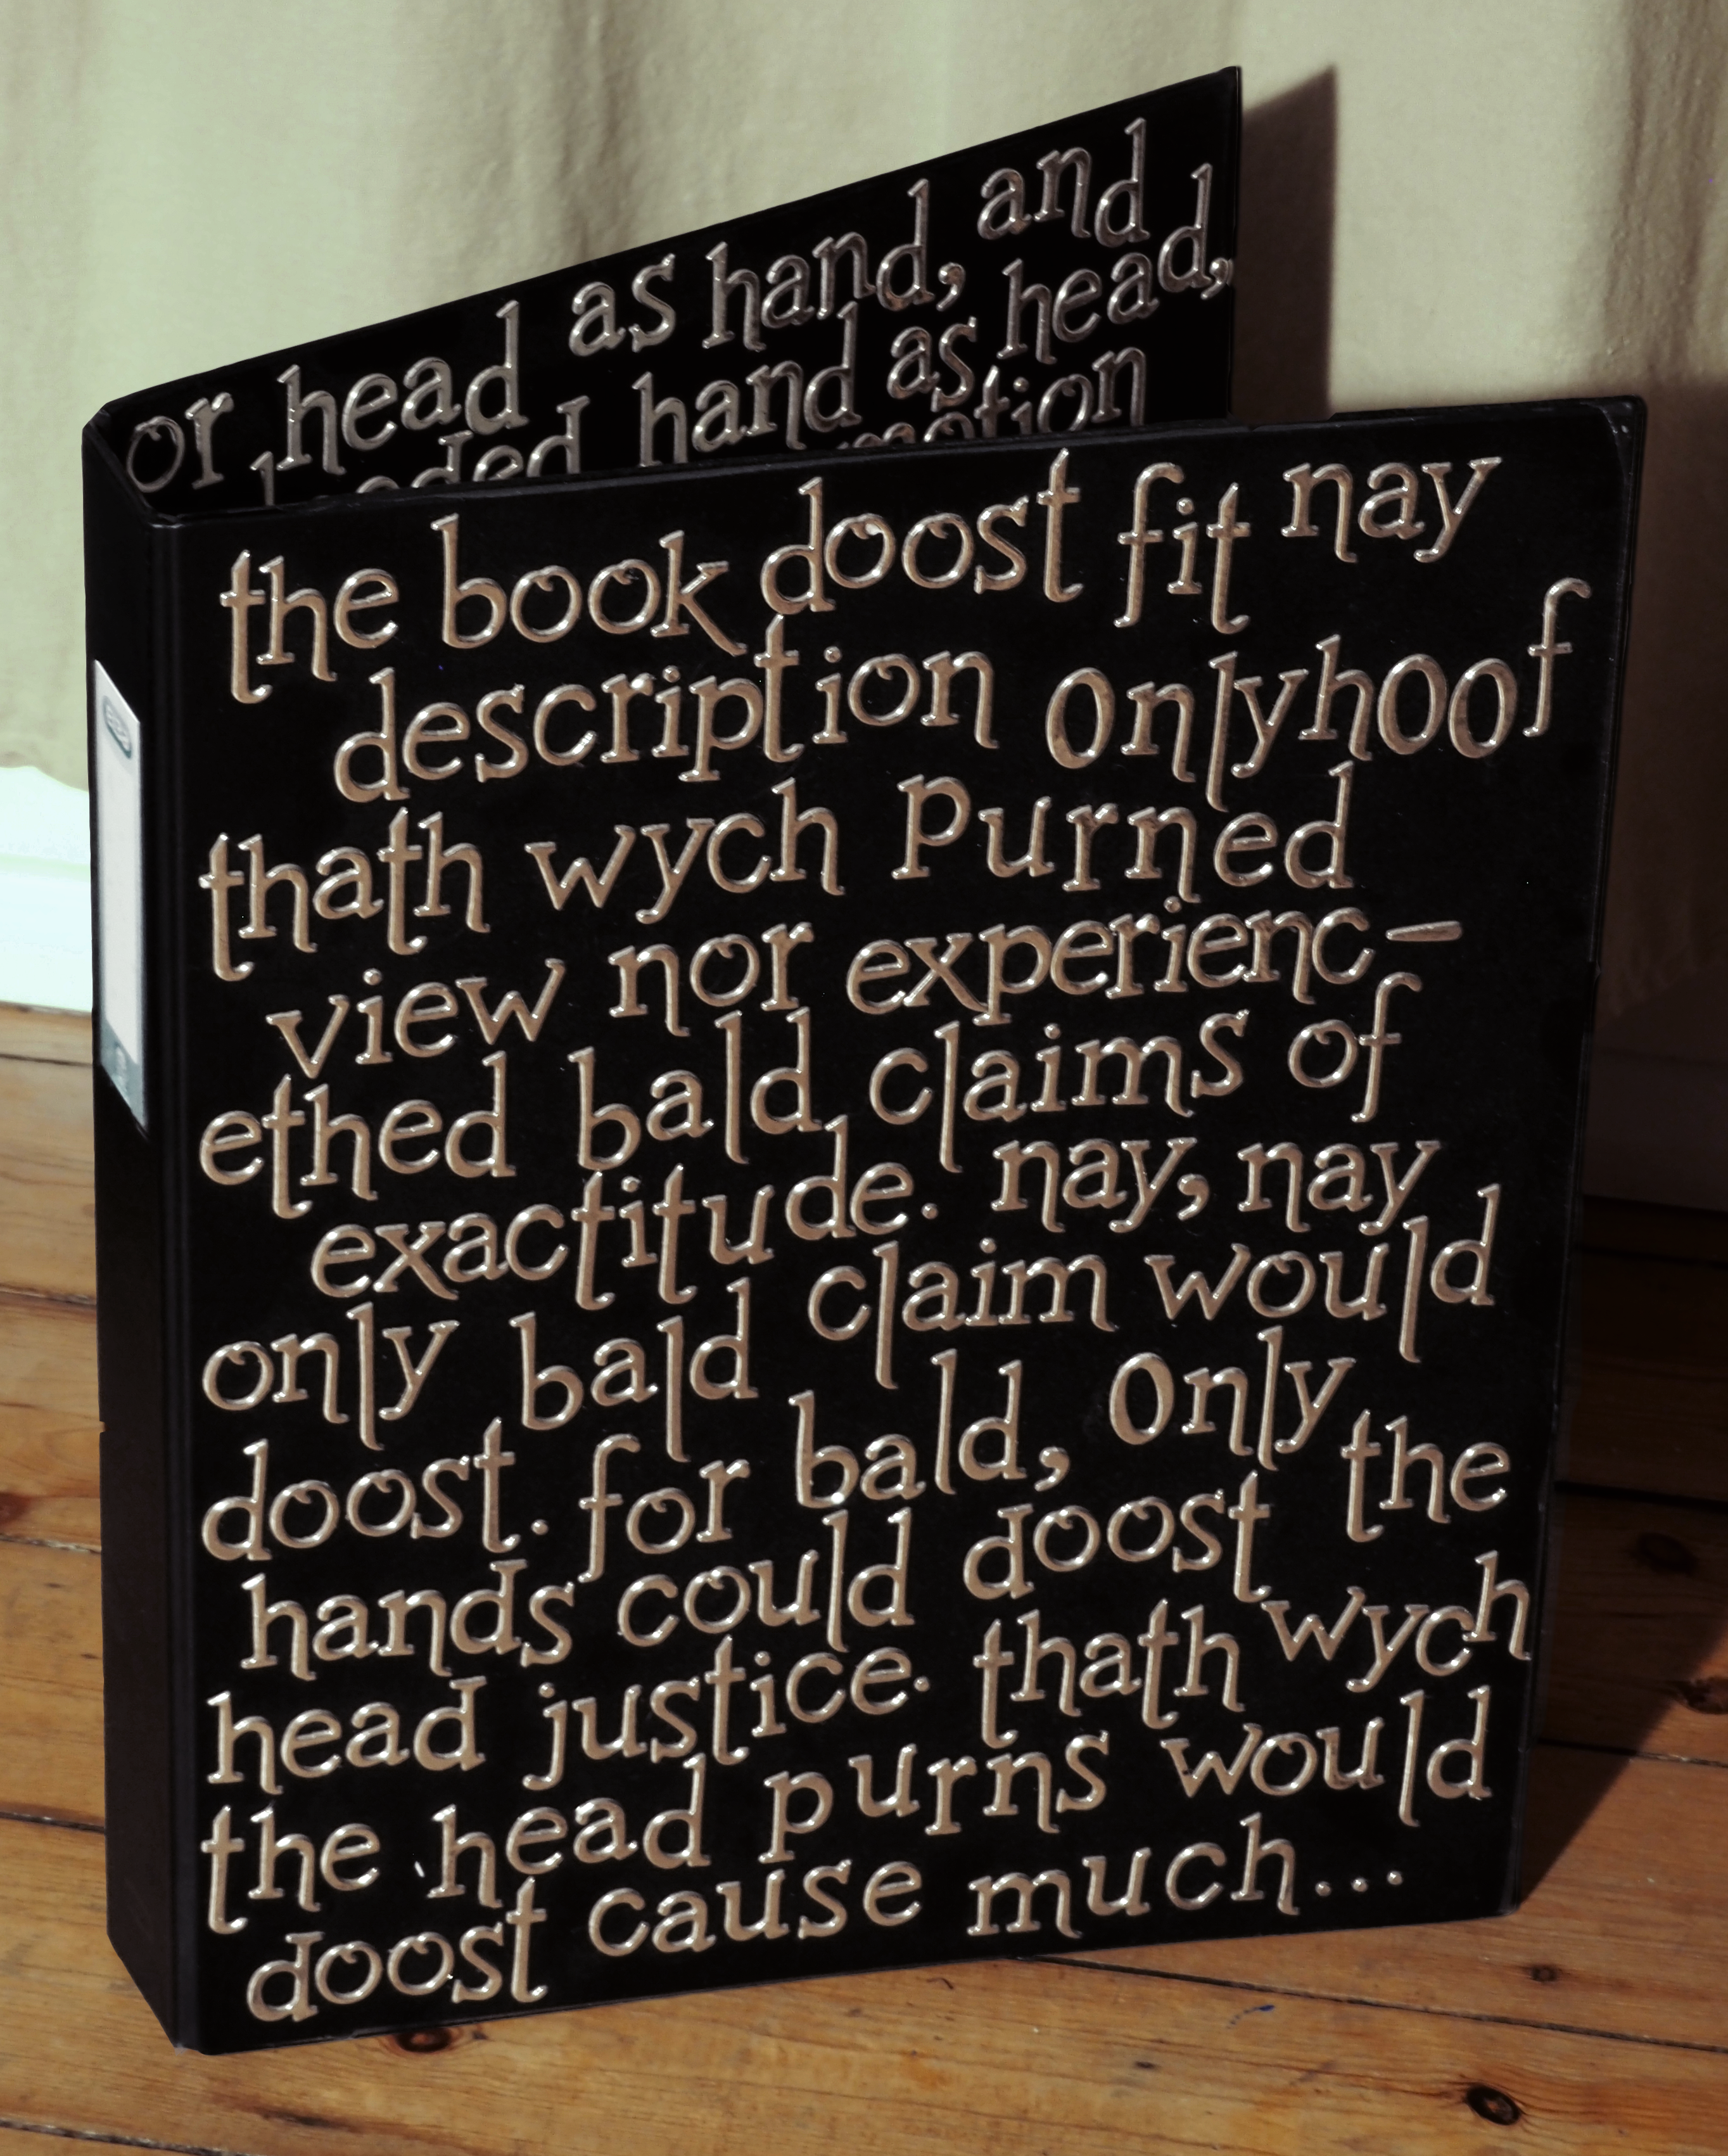 or head as hand, and
hand as head,
the book doost fit nay
description onlyhoof
thath wych purned
view nor experienc-
ethed bald claims of
exactitude. nay, nay
only bald claim would
doost. for bald, only the
hands could doost wych
head justice. thath
the head purns would
doost cause much...